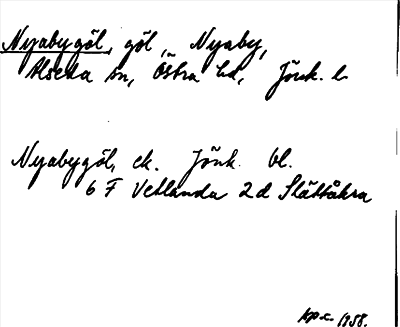 Nyabygöl, göl, Nyaby,
Alseda sn, Östra hd, Jönk. l.
Nyabygöl, ek. Jönk. bl.
6 F Vetlanda 2 d Slättåkra
1958.